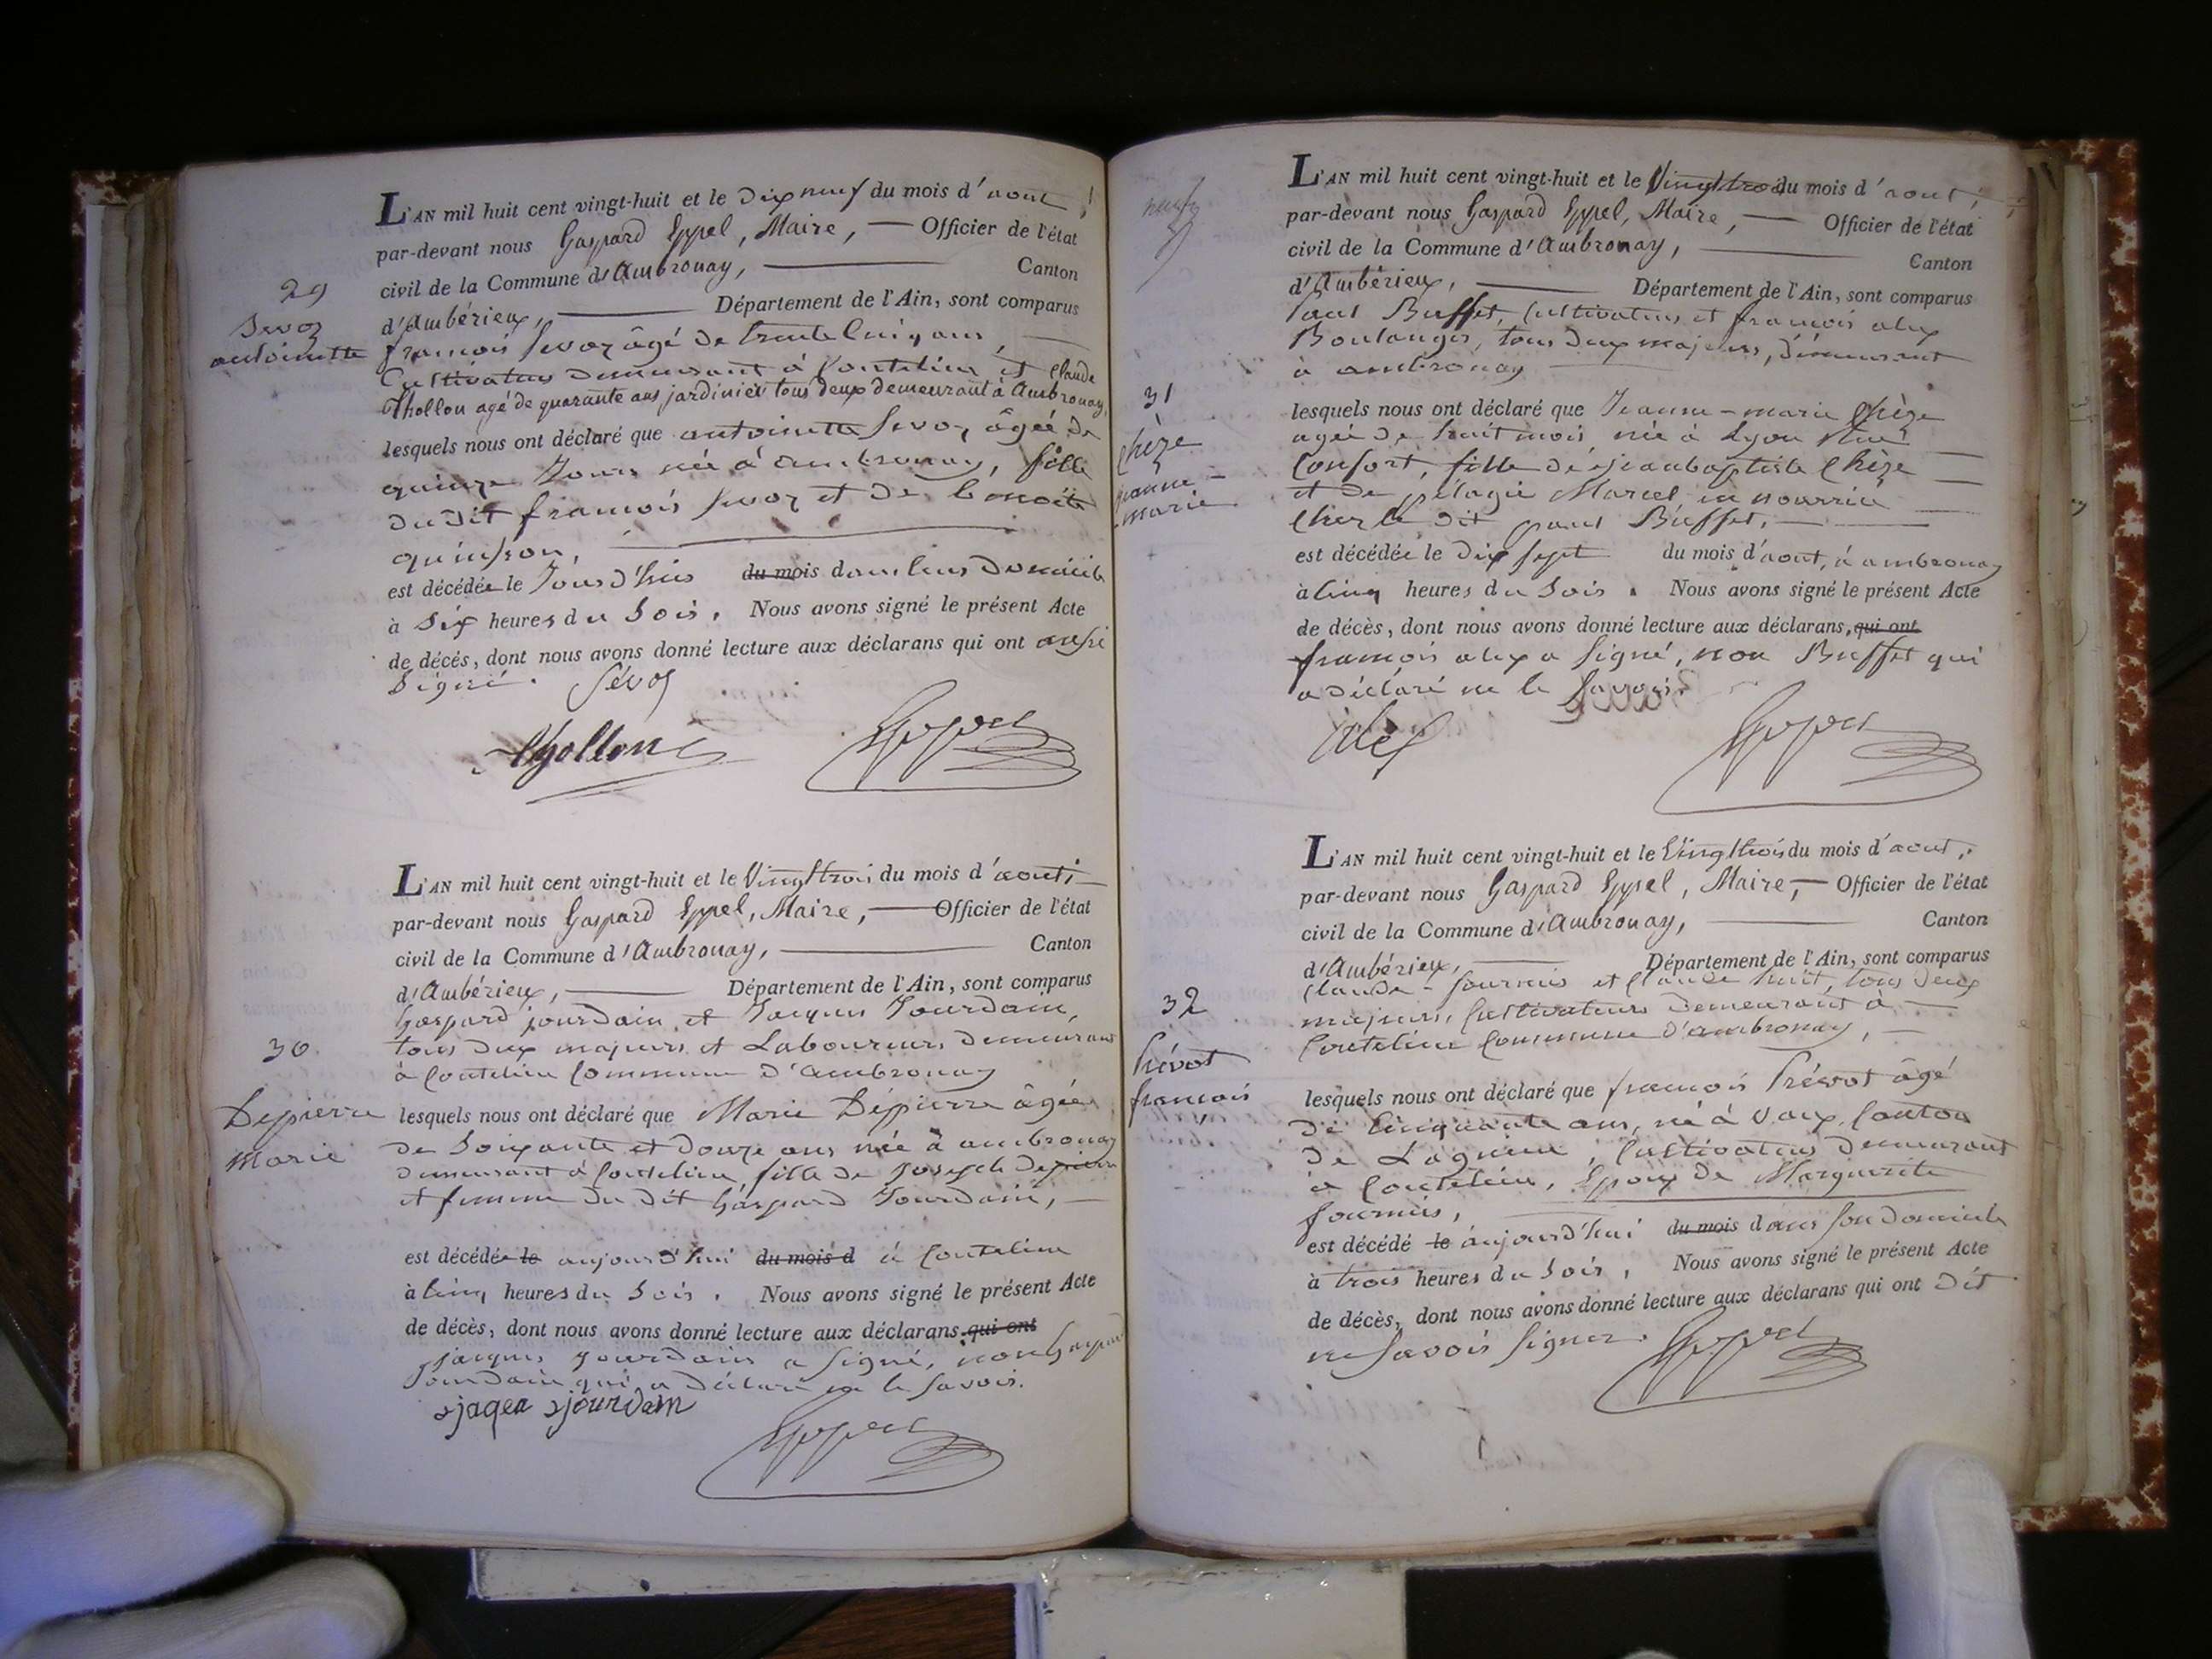 29
Sevoz
antoinette
L'AN mil huit cent vingt-huit et le dix neuf du mois d'aout ;
par-devant nous Gaspard Eppel, Maire, — Officier de l'état
civil de la Commune d'Ambronay, — Canton
d'Ambérieux, — Département de l'Ain, sont comparus
francois Sevoz âgé de trente cinq ans, —
Cultivateur demeurant à Coutelieu et Claude
Thollon agé de quarante ans jardinier tous deux demeurant à Ambronay,
lesquels nous ont déclaré que antoinette Sevoz âgée de
quinze Jours née à ambronay, fille
du dit francois Sevoz et de benoite
quinson, —
est décédée le Jourd'hui du mois dans leur domicile
à Six heures du Soir, Nous avons signé le présent Acte
de décés, dont nous avons donné lecture aux déclarans qui ont aussi
Signé. Sévoz
thollon Eppel
L'AN mil huit cent vingt-huit et le Vingt trois du mois d'aout ; —
par-devant nous Gaspard Eppel, Maire, — Officier de l'état
civil de la Commune d'Ambronay, — Canton
d'Ambérieux, — Département de l'Ain, sont comparus
Gaspard jourdain et Jacques Jourdain,
tous deux majeurs et Laboureurs demeurant
à Coutelieu Commune d'ambronay
30
Depierre
Marie
lesquels nous ont déclaré que Marie Dépierre âgée
de Soixante et douze ans née à ambronay
demeurant à Coutelieu, fille de Joseph Depierre
et femme du dit Gaspard Jourdain, —
est décédée le aujourd'hui du mois d à Coutelieu
à Cinq heures du Soir, Nous avons signé le présent Acte
de décès, dont nous avons donné lecture aux déclarans qui ont
jacques Jourdain a Signé, non Gaspard
Jourdain qui a déclaré ne le Savoir.
jaqea jourdain
Eppel
L'AN mil huit cent vingt-huit et le Vingt trois du mois d'aout ;
par-devant nous Gaspard Eppel, Maire, — Officier de l'état
civil de la Commune d'Ambronay, — Canton
d'Ambérieux, — Département de l'Ain, sont comparus
Paul Buffet, Cultivateur et francois alex
Boulanger, tous deux majeurs, demeurant
à ambronay —
31
Chèze
jeanne -
marie
lesquels nous ont déclaré que Jeanne-marie Chèze
agée de huit mois née à Lyon Rue
Confort, fille de jeanbaptiste Chèze —
et de pélagie Marcel en nourrice —
Chez le dit paul Buffet, —
est décédée le dix sept du mois d'aout, à ambronay
à Cinq heures du Soir. Nous avons signé le présent Acte
de décès, dont nous avons donné lecture aux déclarans, qui ont
francois alex a Signé, non Buffet qui
a déclaré ne le Savoir.
alex Eppel
L'AN mil huit cent vingt-huit et le Vingt trois du mois d'aout ;
par-devant nous Gaspard Eppel, Maire, — Officier de l'état
civil de la Commune d'Ambronay, — Canton
d'Ambérieux, — Département de l'Ain, sont comparus
Claude - fournier et Claude huit, tous deux
majeurs, Cultivateurs demeurant à —
Coutelieu Commune d'ambronay, —
32
Prévot
francois
lesquels nous ont déclaré que francois Prévot âgé
de Cinquante ans, né à Vaux, Canton
de Lagnieu, Cultivateur demeurant
à Coutelieu, Epoux de Marguerite
fournier, —
est décédé le aujourd'hui du mois dans son domicile
à trois heures du Soir, Nous avons signé le présent Acte
de décès, dont nous avons donné lecture aux déclarans qui ont dit
ne Savoir Signer. Eppel